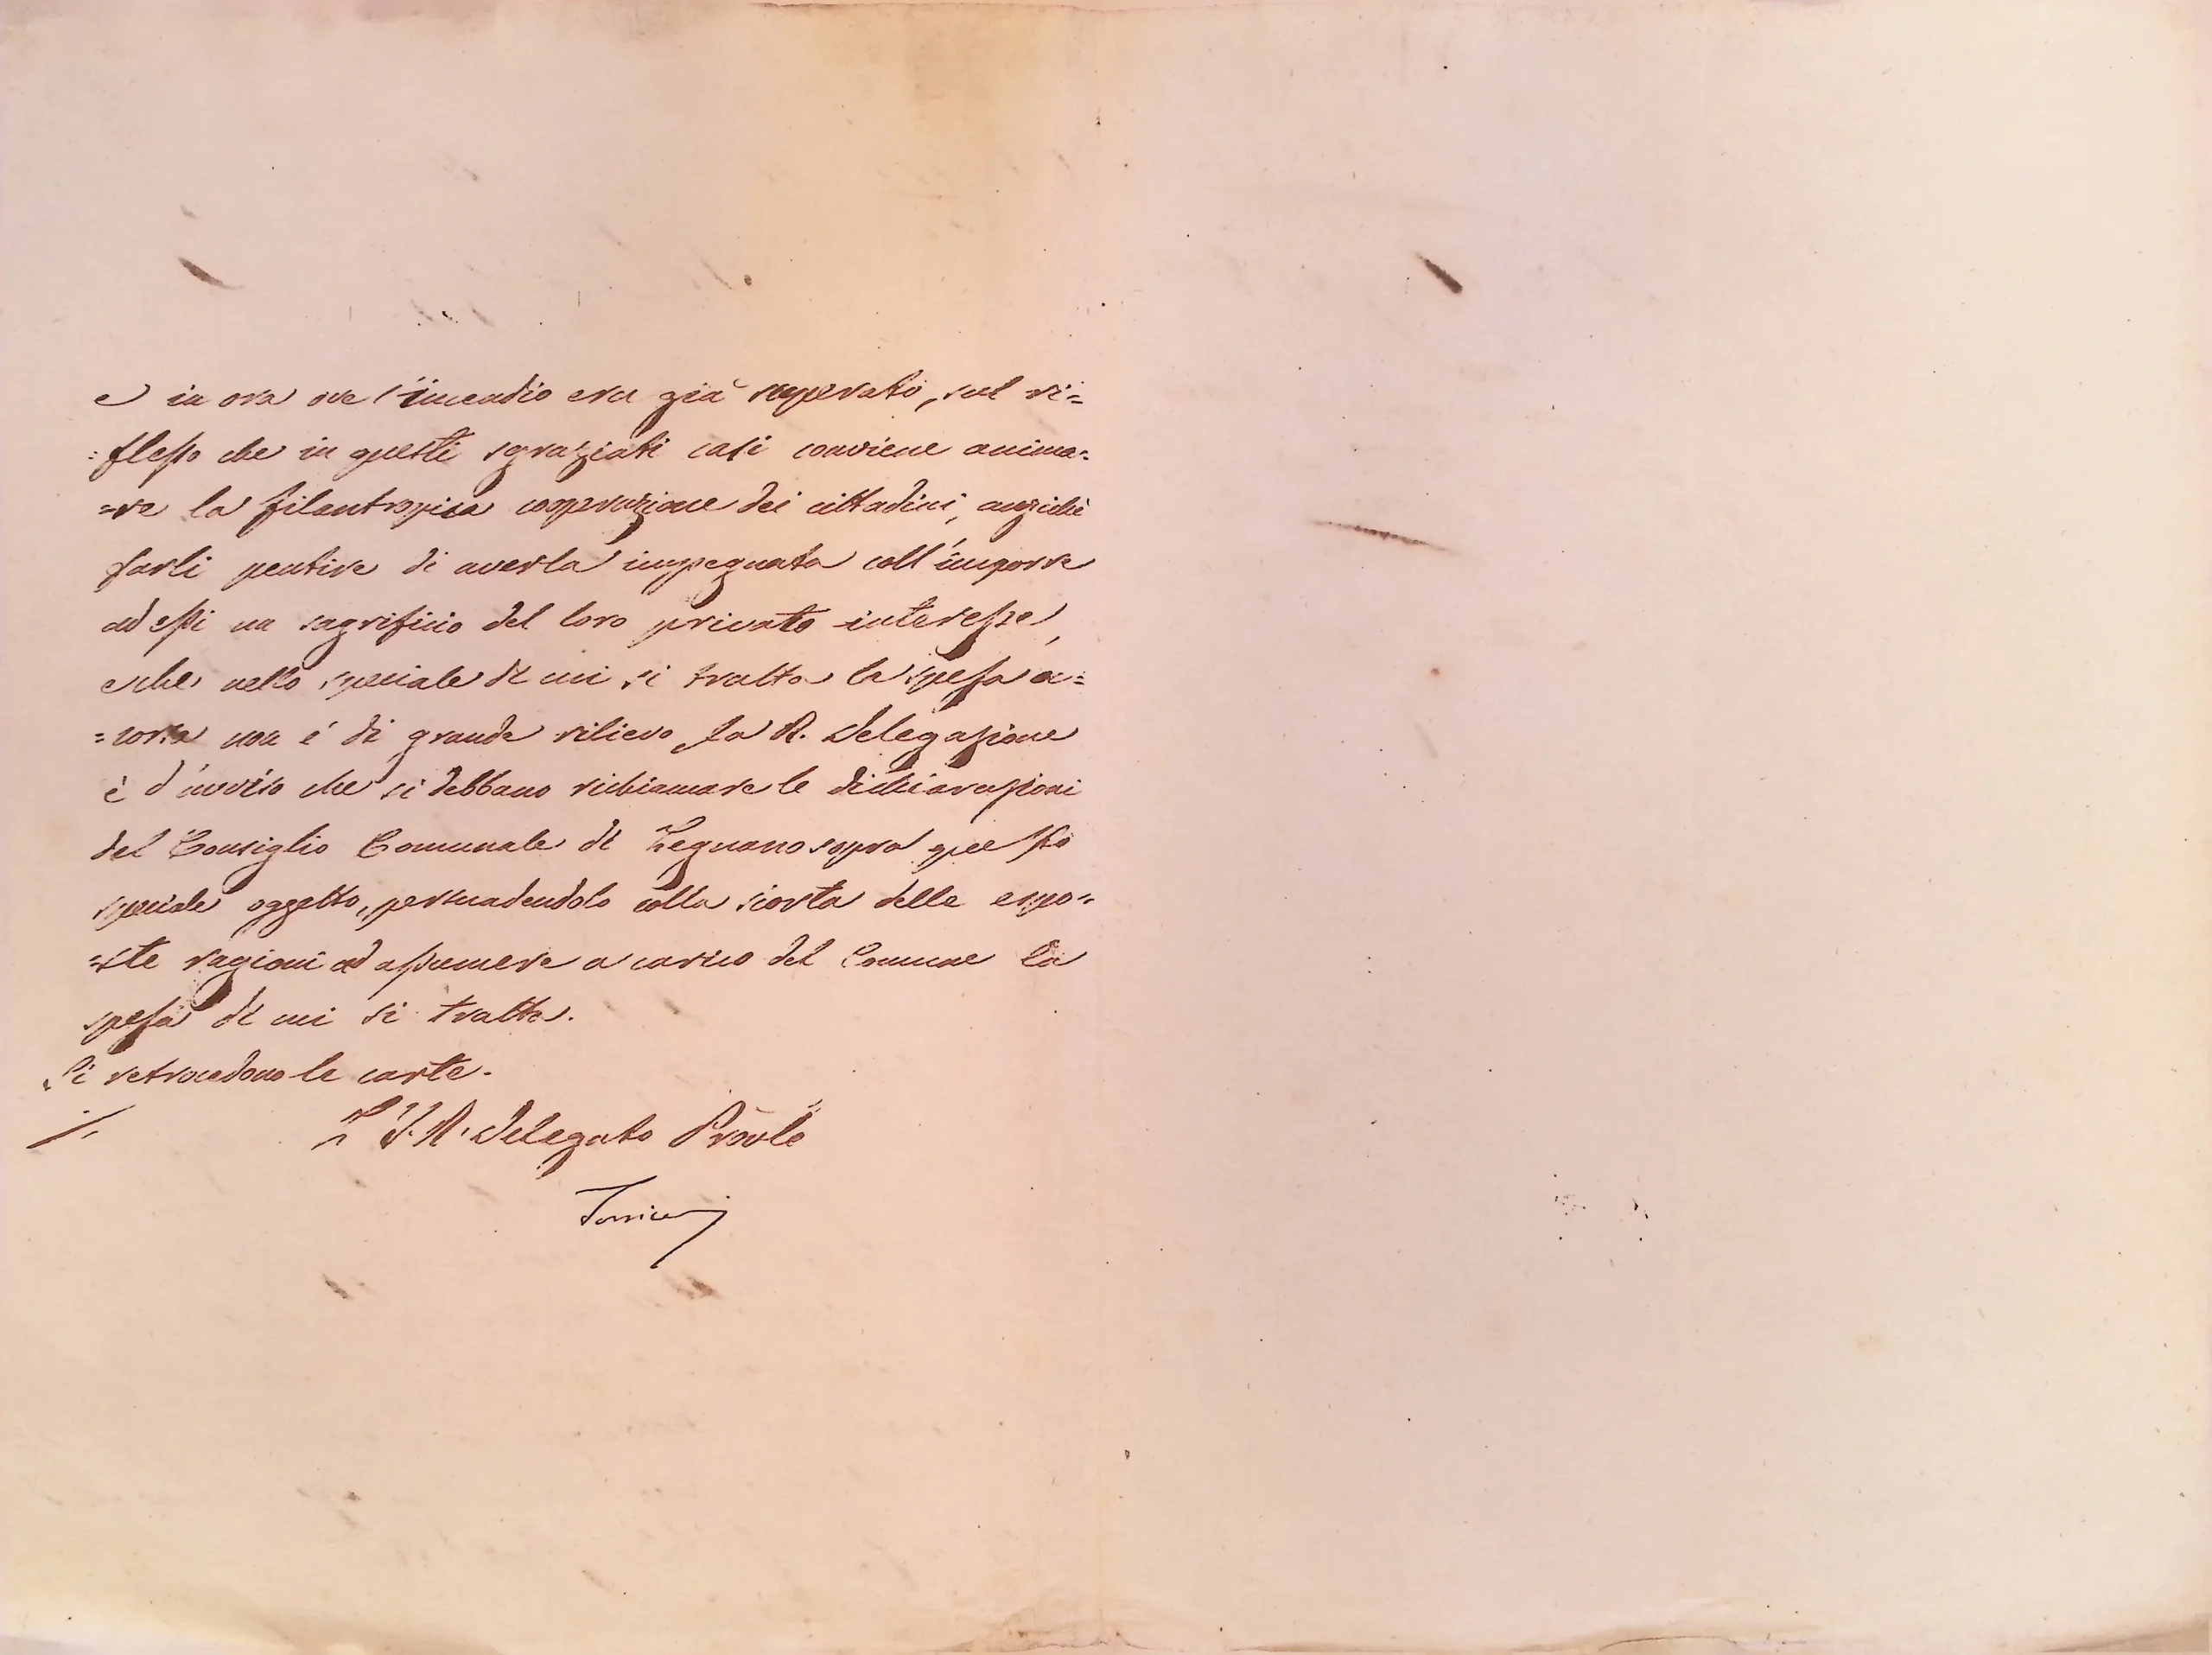 e in ora ove l'incendio era già superato, sul ri=
=flesso che in questi sgraziati casi conviene anima=
=re la filantropica cooperazione dei cittadini, anzichè
farli pentire di averla impegnata coll'imporre
ad essi un sagrificio del loro privato interesse,
e che nello speciale di cui si tratta la spesa a=
=corsa non é di grande rilievo, la R. Delegazione
è d'avviso che si debbano richiamare le dichiarazioni
del Consiglio Comunale di Legnano sopra questo
speciale oggetto, persuadendolo colla scorta delle espo=
=ste ragioni ad assumere a carico del Comune la
spesa di cui si tratta.
Si retrocedono le carte.
L'I. R. Delegato Provle